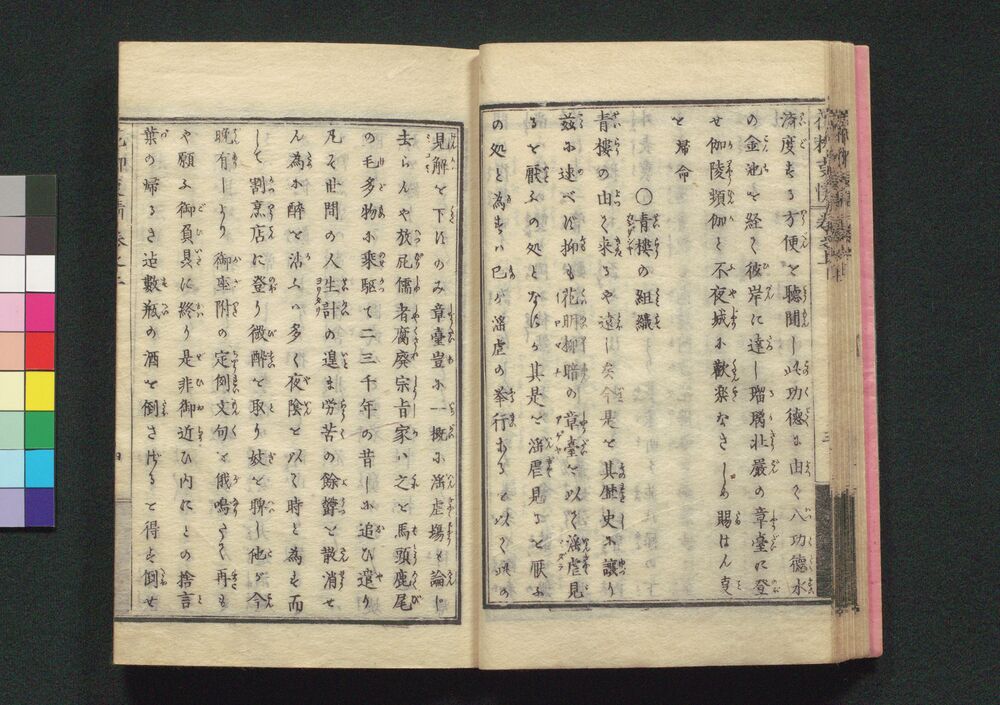 花柳事情 巻之上
済度する方便を聴聞し此功徳に由て八功徳水
の金池を経て彼岸に達し瑠璃荘厳の章臺に登
せ伽陵頻伽と不夜城に歓楽なさしめ賜はん
と帰命
〇青樓の組織
青樓の由て来るや遠し矣今是を其歴史に譲り
茲に述べず抑も花明柳暗の章臺を以て淫虐見
ると厭ふの処となにが其是を淫虐見ると厭ふ
の処と為すは已が淫虐の挙行あるを以て此の
見解を下すのみ章臺豈に一概に淫虐場を論じ
去らんや放屁儒者腐廃宗旨家は之を馬頭鹿尾
の毛多物に乗駆て二三千年の昔しに追ひ遣り
凡そ世間の人生計の遑ま労苦の餘欝を散消せ
ん為に酔を沽ふは多く夜陰を以て時と為す而
して割烹店に登り微酔を取り妓を聘し他が今
晩有しより御座附の定例文句を俄鳴きて再も
や願ふ御負具に終り是非御近ひ内にとの捨言
葉の帰るさ迠数瓶の酒を倒さゞると得ず倒せ